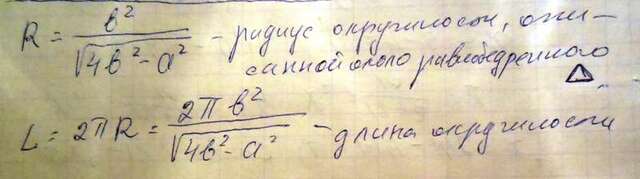 R = в²/√(4в²-a²) - радиус окружности, опи-
санной около равнобедренного △
L = 2πR = 2πв²/√(4в²-a²) - длина окружности